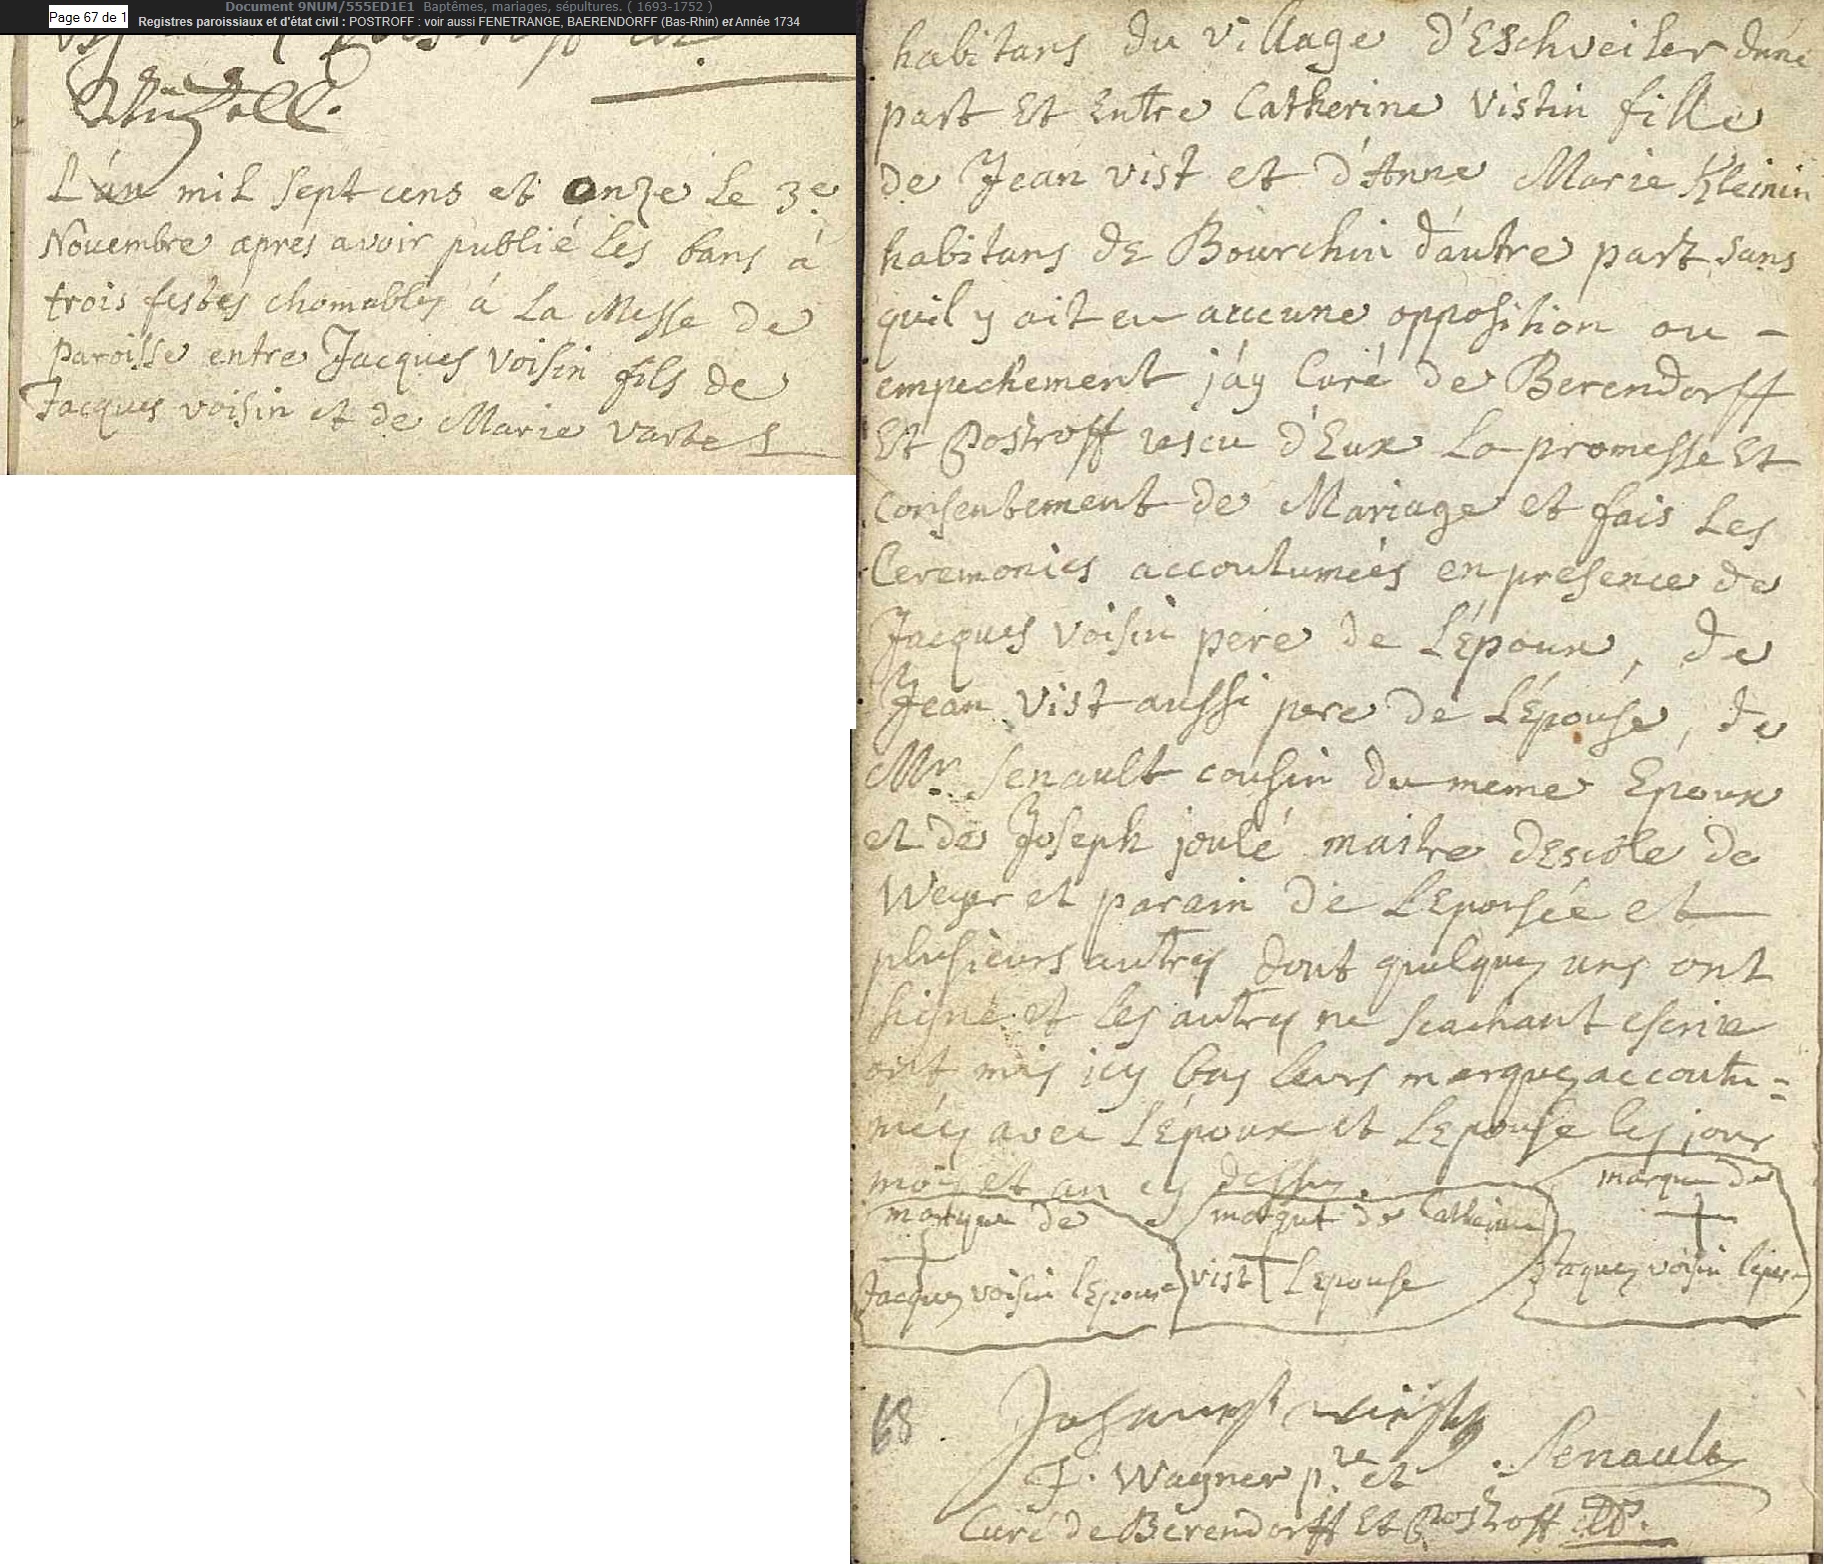 Page 67 de 1
Document 9NUM/555ED1E1 Baptêmes, mariages, sépultures. ( 1693-1752 )
Registres paroissiaux et d'état civil : POSTROFF : voir aussi FENETRANGE, BAERENDORFF (Bas-Rhin) et Année 1734
L'án mil sept cens et onze le 3e
Nouembre apres avoir publié les bans á
trois festes chomables á La Messe de
paroisse entre Jacques voisin fils de
Jacques voisin et de Marie vartel
habitans du village d'Eschveiler dune
part Et Entre Catherine vistin fille
de Jean vist et d'Anne Marie Kleinin
habitans de Bourchin dáutre part sans
quil y ait eu aucune opposition ou -
empechement j'áy Curé de Berendorff
Et Postroff rescu d'Eux La promesse Et
Consentement de Mariage et fais Les
Ceremonies accoutumées en presence de
Jacques voisin pere de L'Epoux, de
Jean vist aussi pere de L'Épouse, de
Mr. Senault cousin du meme Epoux
et de Joseph joulé maitre descole de
Weyer et parain de LEpousée et
plusieurs autres dont quelques uns ont
signé et les autres ne scachant escrire
ont mis icy bas leurs marques accoutu=
mées avec L'Époux et LEpouse les jour
mois et an cy dessus.
marque de
Jacques voisin lEpoux
marque de Catherine
vist Lepouse
marque de
Jaques voisin le pere
68
Senault
J. Wagner p.re et
Curé de Berendorff Et Postroff